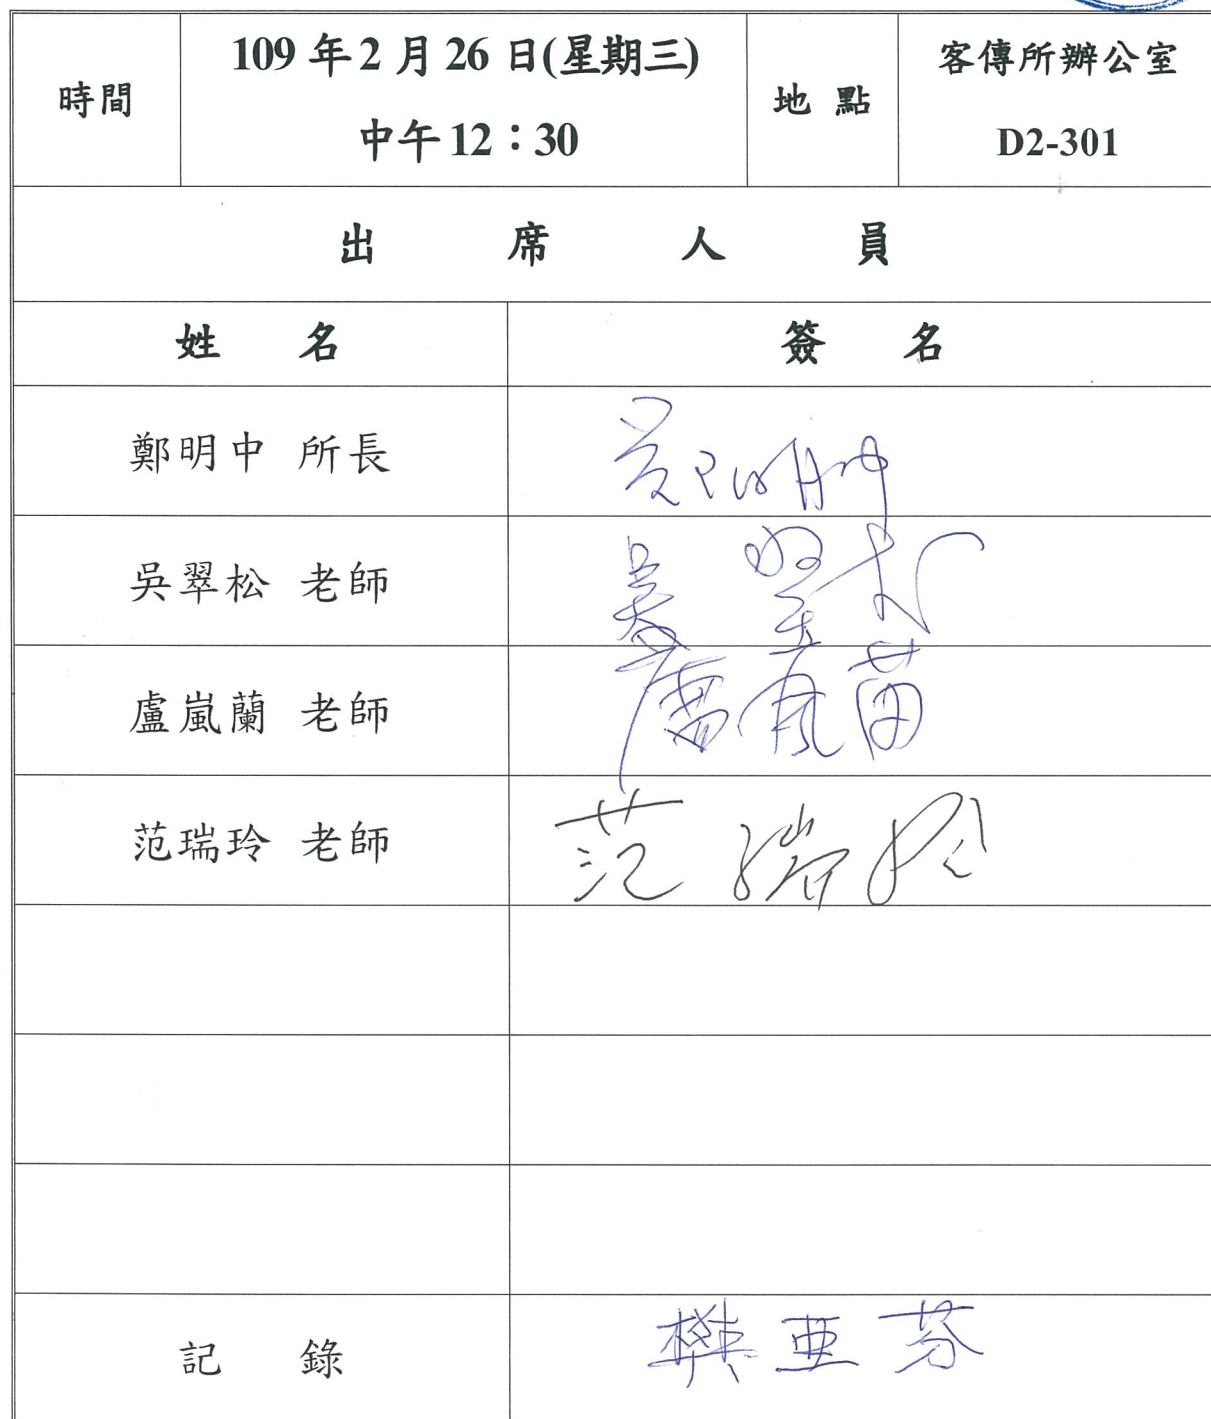 時間 109年2月26日(星期三) 中午12：30 地點 客傳所辦公室 D2-301
出席人員
姓名 簽名
鄭明中 所長 鄭明中
吳翠松 老師 吳翠松
盧嵐蘭 老師 盧嵐蘭
范瑞玲 老師 范瑞玲
記錄 樊亞芬